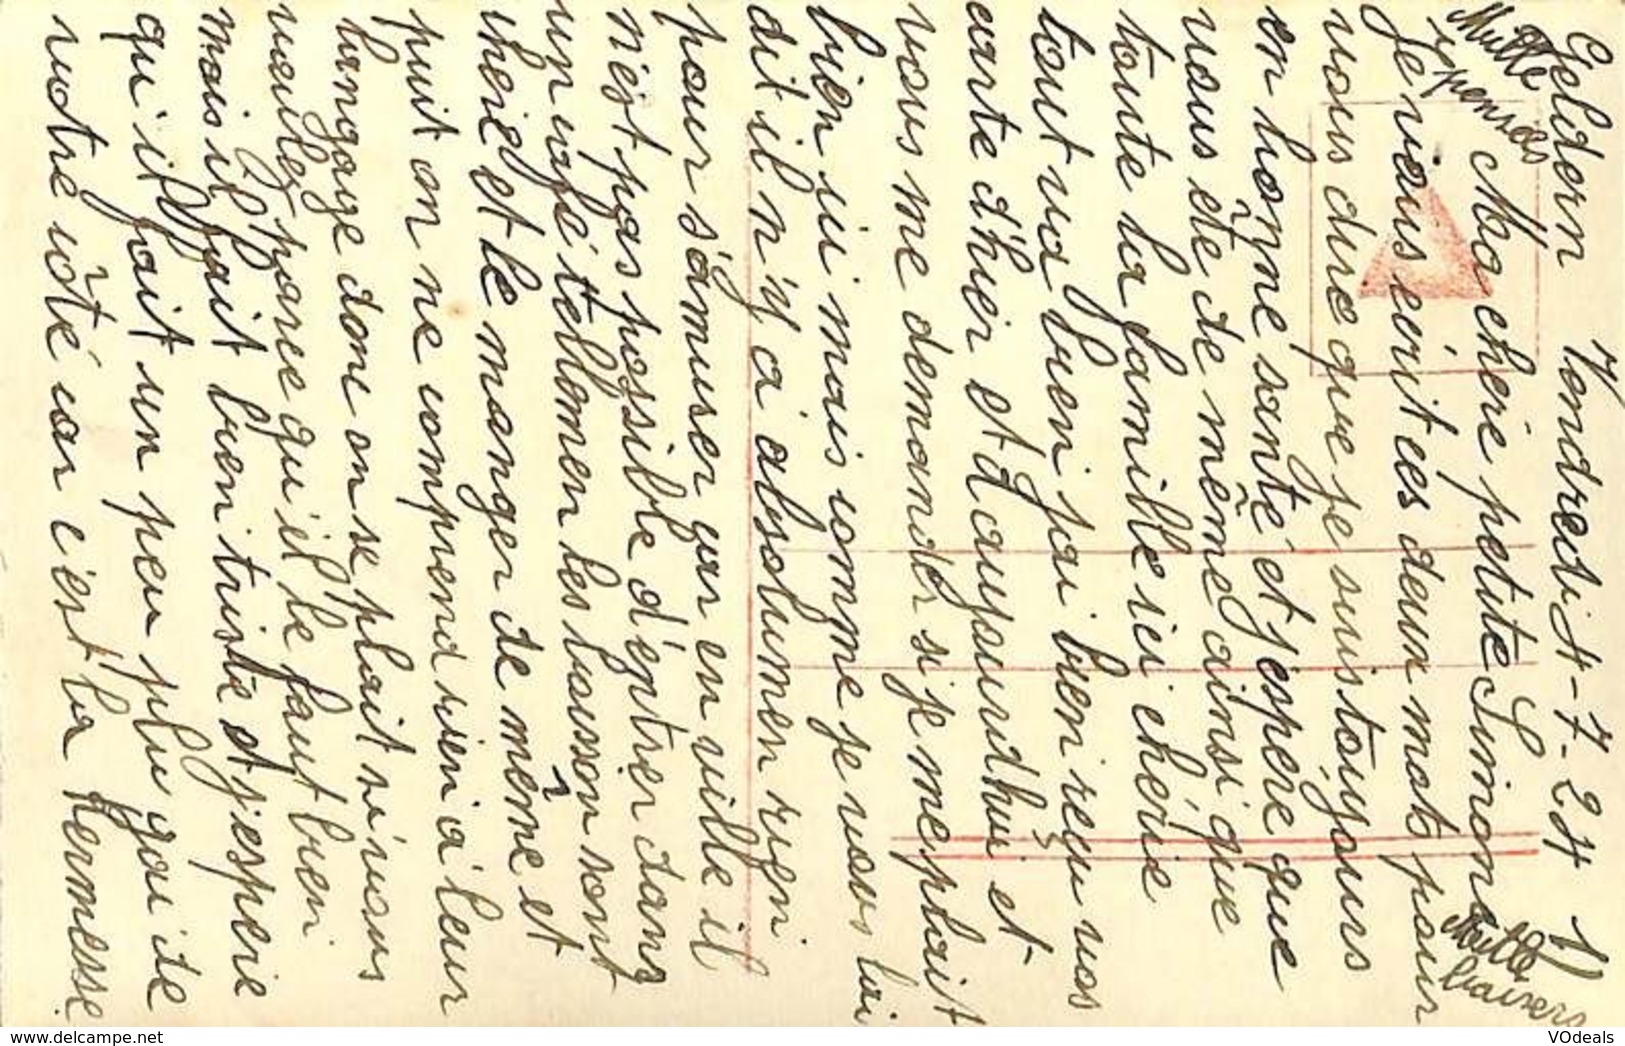 Geldern Vendredi 4-7-24 1)
Mille pensées
Ma cherie petite Simone
Mille baisers
Je vous écrit ces deux mots pour
vous dire que je suis toujours
en bonne santé et j'espère que
vous ête de même ainsi que
toute la famille ici chérie
tout va bien j'ai bien reçu vos
carte d'hier et d'aujourd'hui et
vous me demander si je me plait
bien ici mais comme je vous l'ai
dit il n'y a absolumen rien
pour s'amuser car en ville il
n'est pas possible d'entrer dans
un café tellemen les boisson sont
cherie et le manger de même et
puit on ne comprend rien a leur
langage donc on se plait si vous
voulez parce qu'il le faut bien
mais il fait bien triste et j'espère
qu'il fait un peu plu gai de
votre côté car c'est la Kermesse
VOdeals
www.delcampe.net